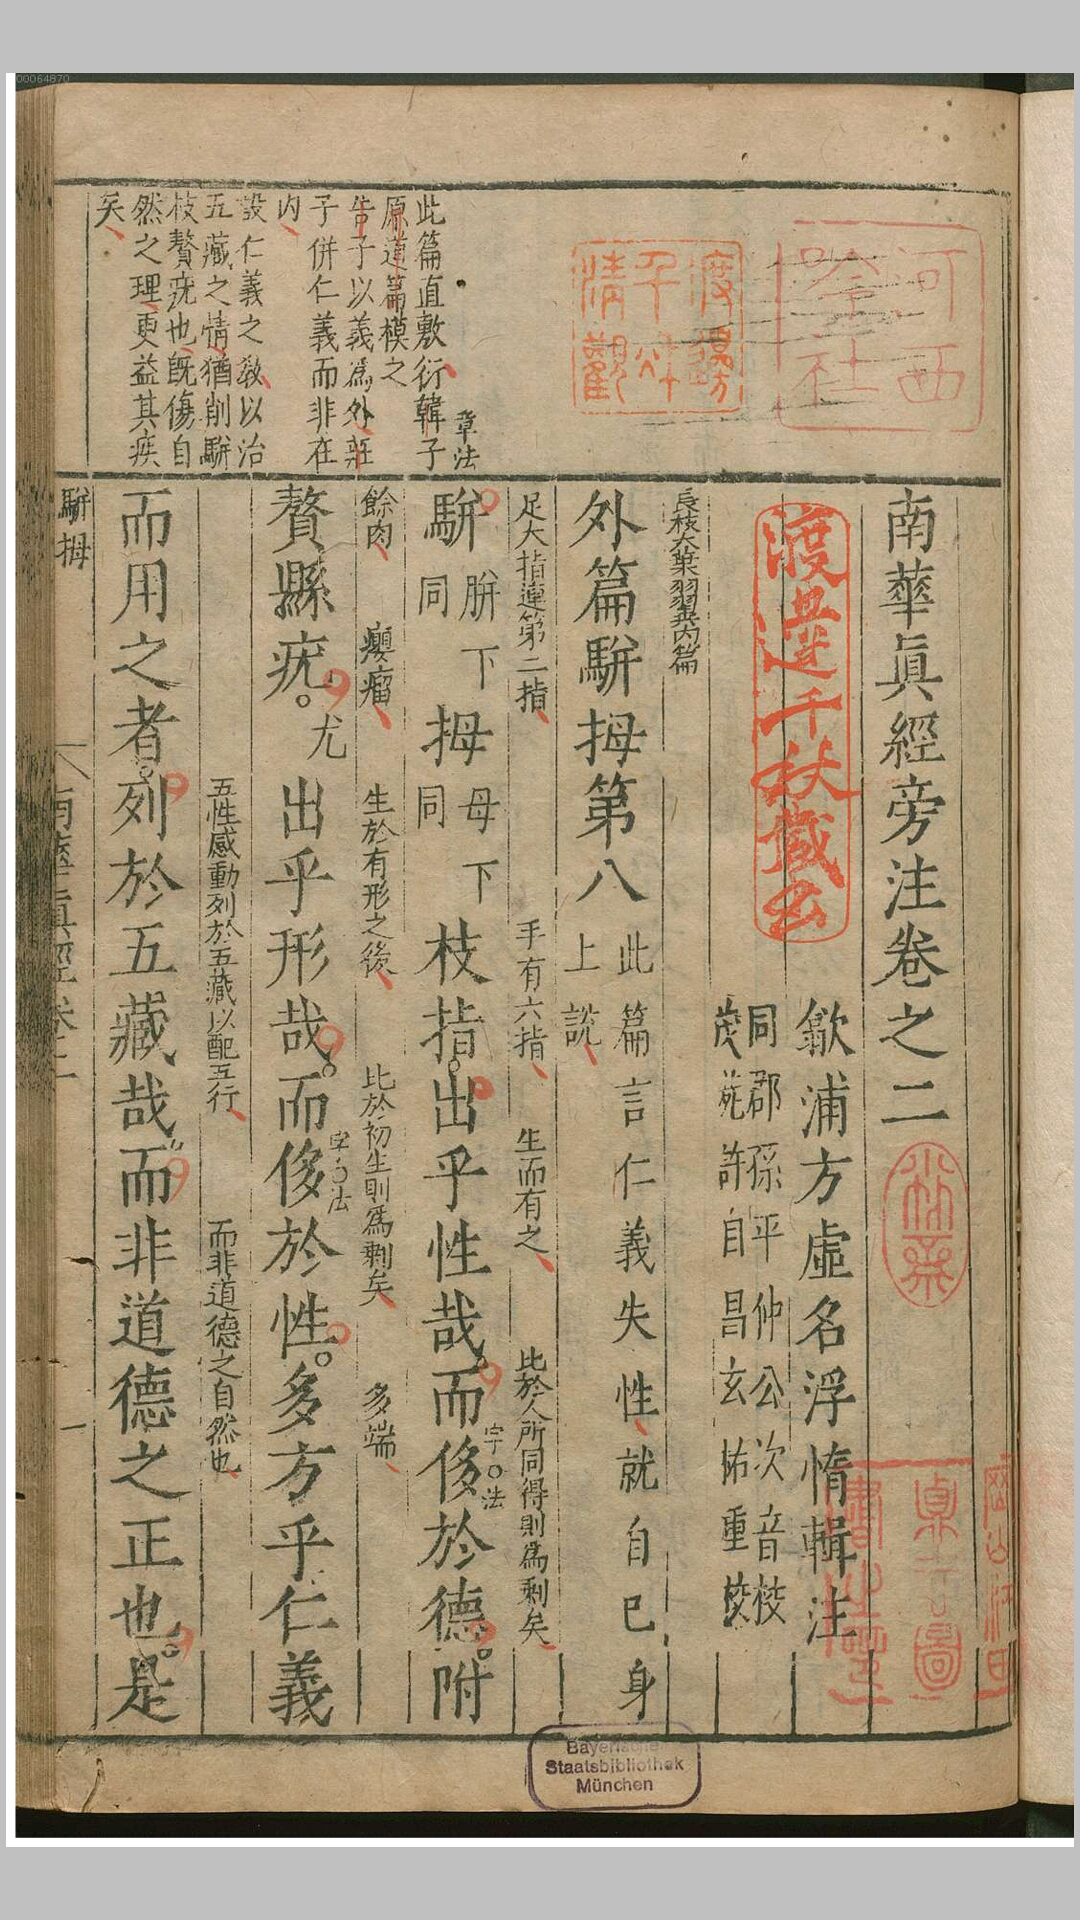 00064870
南華眞經旁注卷之二
歙浦方虛名浮惰輯注
同郡孫平仲公次音校
茂苑許自昌玄祐重校
長枝大葉羽翼內篇
外篇駢拇第八 此篇言仁義失性就自己身上說
足大指連第二指 手有六指 生而有之 比於人所同得則爲剩矣
駢 胼下同 拇 母下同 枝指出乎性哉而侈於德附
字句法
餘肉 癭瘤 生於有形之後 比於初生則爲剩矣 多端
贅縣疣 尤 出乎形哉而侈於性多方乎仁義
字句法
五性感動列於五藏以配五行 而非道德之自然也
而用之者列於五藏哉而非道德之正也是
章法
此篇直敷衍韓子
原道篇模之
告子以義爲外莊
子併仁義而非在
內
設仁義之教以治
五藏之情猶削駢
枝贅疣也旣傷自
然之理更益其疾
矣
駢拇
南華眞經卷二
一
河西
吟社
渡邊千秋藏書
Bayerische
Staatsbibliothek
München